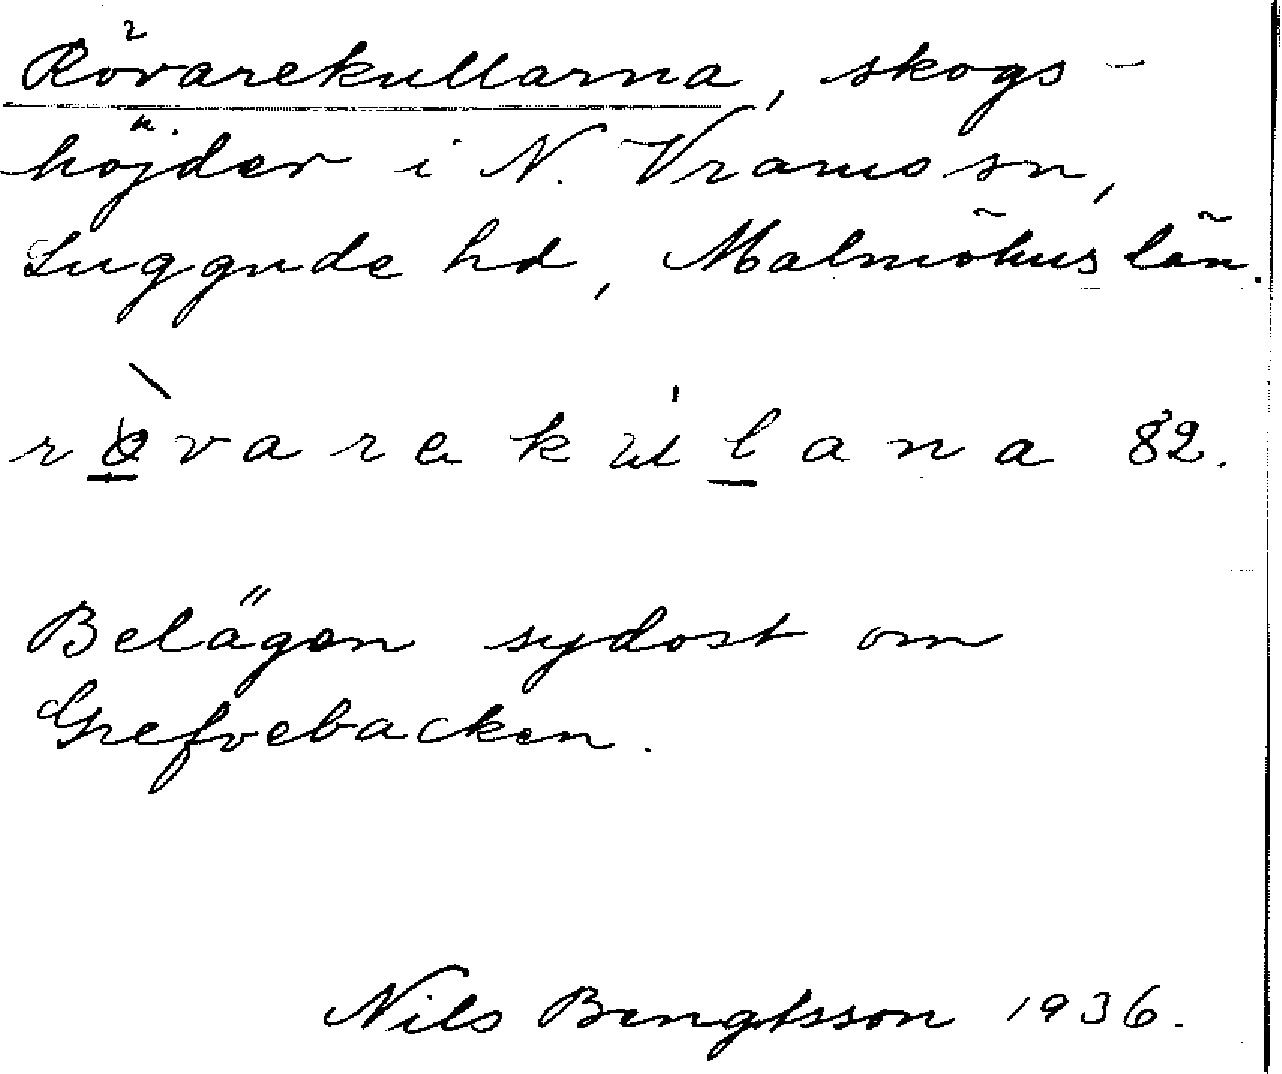 Rövarekullarna, skogs-
höjder i N. Vrams sn,
Luggude hd, Malmöhus län.
rövarekulana 82.
Belägen sydost om
Grefvebacken.
Nils Bengtsson 1936.